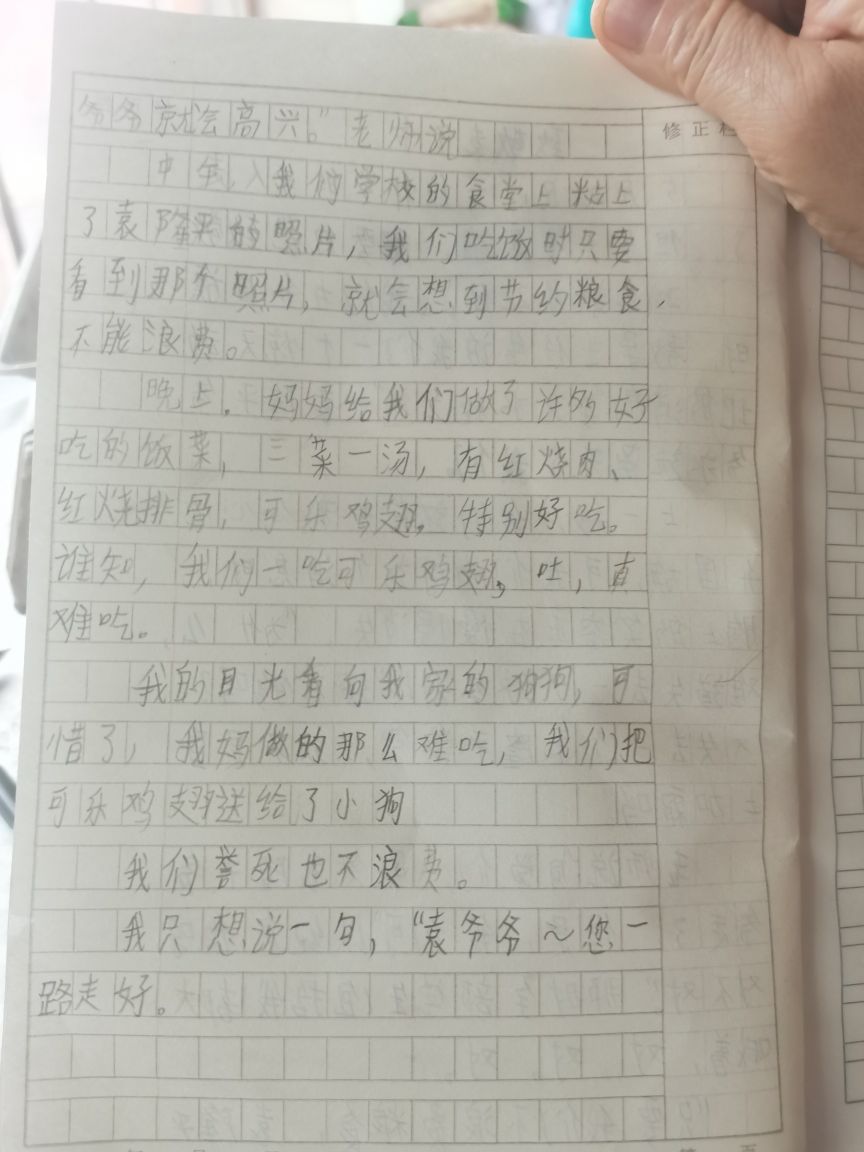 爷爷就会高兴。”老师说
修正栏
中午,我们学校的食堂上粘上
了袁隆平的照片,我们吃饭时只要
看到那个照片,就会想到节约粮食,
不能浪费。
晚上,妈妈给我们做了许多好
吃的饭菜,三菜一汤,有红烧肉、
红烧排骨,可乐鸡翅,特别好吃。
谁知,我们一吃可乐鸡翅,吐,真
难吃。
我的目光看向我家的狗狗,可
惜了,我妈做的那么难吃,我们把
可乐鸡翅送给了小狗
我们誓死也不浪费。
我只想说一句,“袁爷爷~您一
路走好。